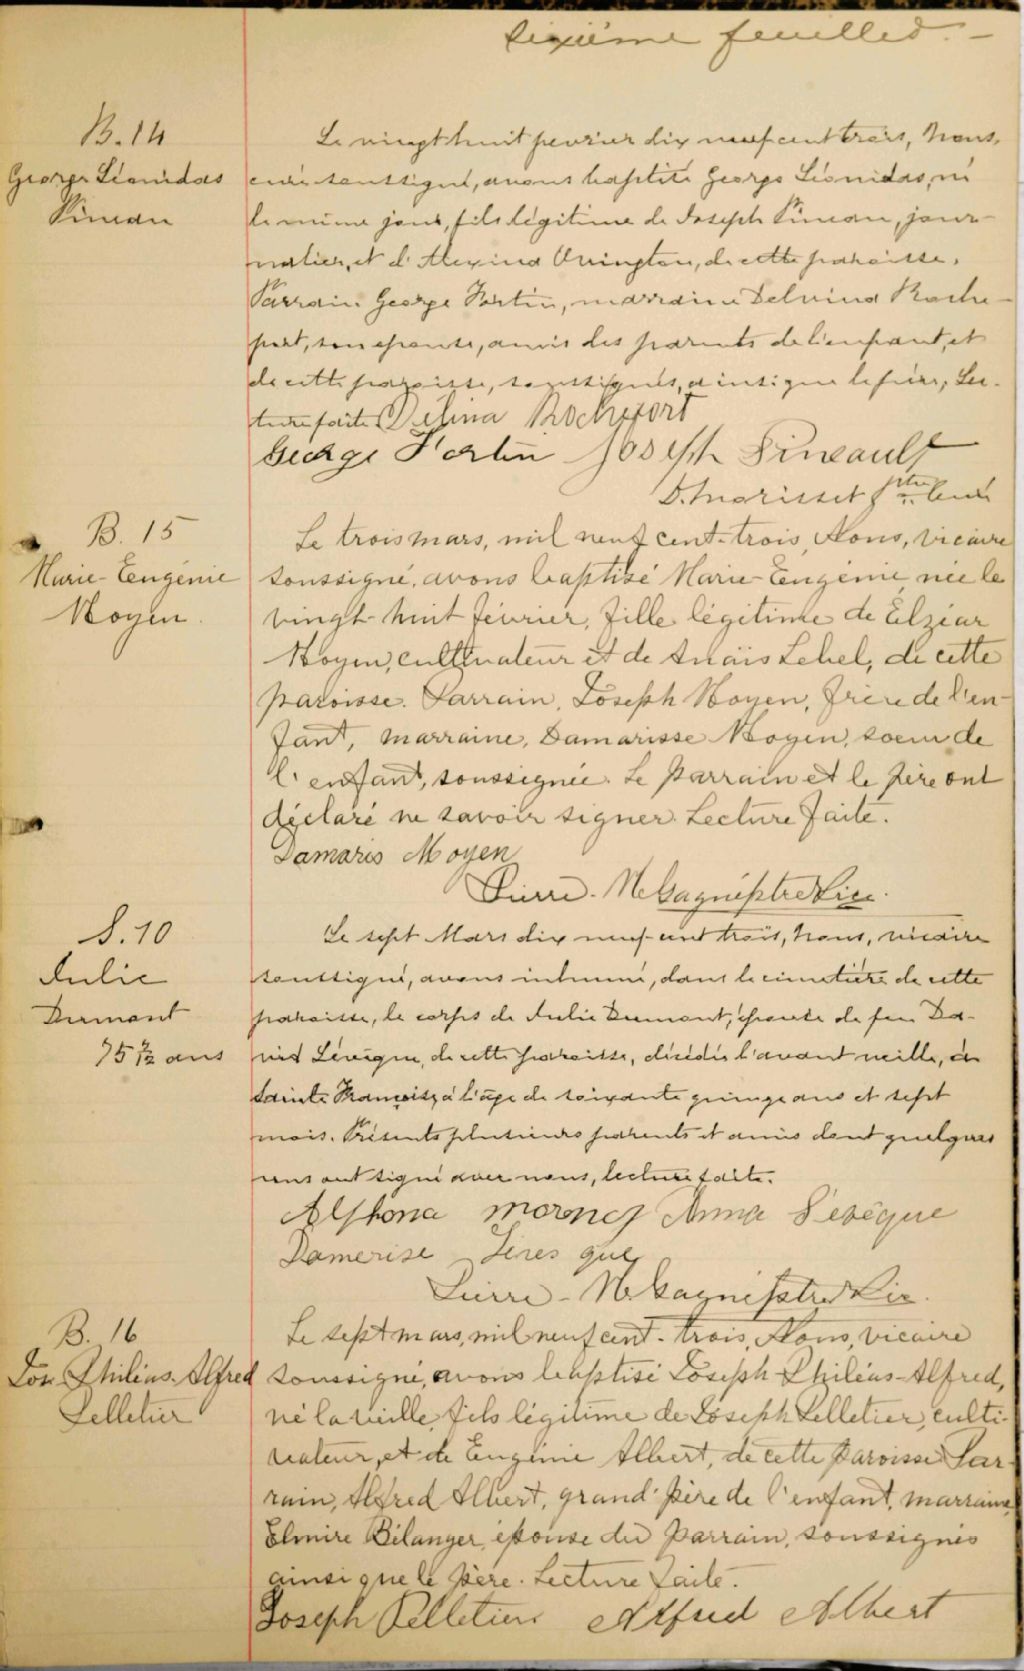 Sixième feuillet. —
B. 14
George Léonidas
Pineau
Le vingt huit fevrier dix neuf cent trois, Nous,
curé soussigné, avons baptisé George Léonidas, né
le même jour, fils légitime de Joseph Pineau, jour-
nalier, et d'Alexina Ouington, de cette paroisse.
Parrain George Fortin, marraine Delvina Roche-
fort, son epouse, amis des parents de l'enfant, et
de cette paroisse, soussignés, ainsi que le père, Lec-
ture faite. Delina Rochefort
George Fortin Joseph Pineault
D. Morisset Ptre Curé
B. 15
Marie-Eugénie
Moyen.
Le trois mars, mil neuf cent-trois, Nous, vicaire
soussigné, avons baptisé Marie-Eugénie, née le
vingt-huit février, fille légitime de Elzéar
Moyen, cultivateur et de Anaïs Lebel, de cette
paroisse. Parrain, Joseph Moyen, frère de l'en-
fant, marraine, Damarisse Moyen, soeur de
l'enfant, soussignée. Le parrain et le père ont
déclaré ne savoir signer. Lecture faite.
Damaris Moyen
Pierre-N. Gagné ptre Vic.
S. 10
Julie
Dumont
75 7/12 ans
Le sept Mars dix neuf-cent trois, Nous, vicaire
soussigné, avons inhumé, dans le cimetière de cette
paroisse, le corps de Julie Dumont, épouse de feu Da-
vid Lévêque, de cette paroisse, décédée l'avant veille, à
Sainte Françoise, à l'âge de soixante quinze ans et sept
mois. Présents plusieurs parents et amis dont quelques
uns ont signé avec nous, lecture faite.
Alphona Anna Levêque
Damerise
Pierre-N. Gagné ptre Vic.
B. 16
Jos. Philéas-Alfred
Pelletier
Le sept mars, mil neuf cent-trois, Nous, vicaire
soussigné, avons baptisé Joseph-Philéas-Alfred,
né la veille, fils légitime de Joseph Pelletier, culti-
vateur, et de Eugénie Albert, de cette paroisse. Par-
rain, Alfred Albert, grand'père de l'enfant, marraine,
Elmire Bélanger, épouse du parrain, soussignés
ainsi que le père. Lecture faite.
Joseph Pelletier Alfred Albert